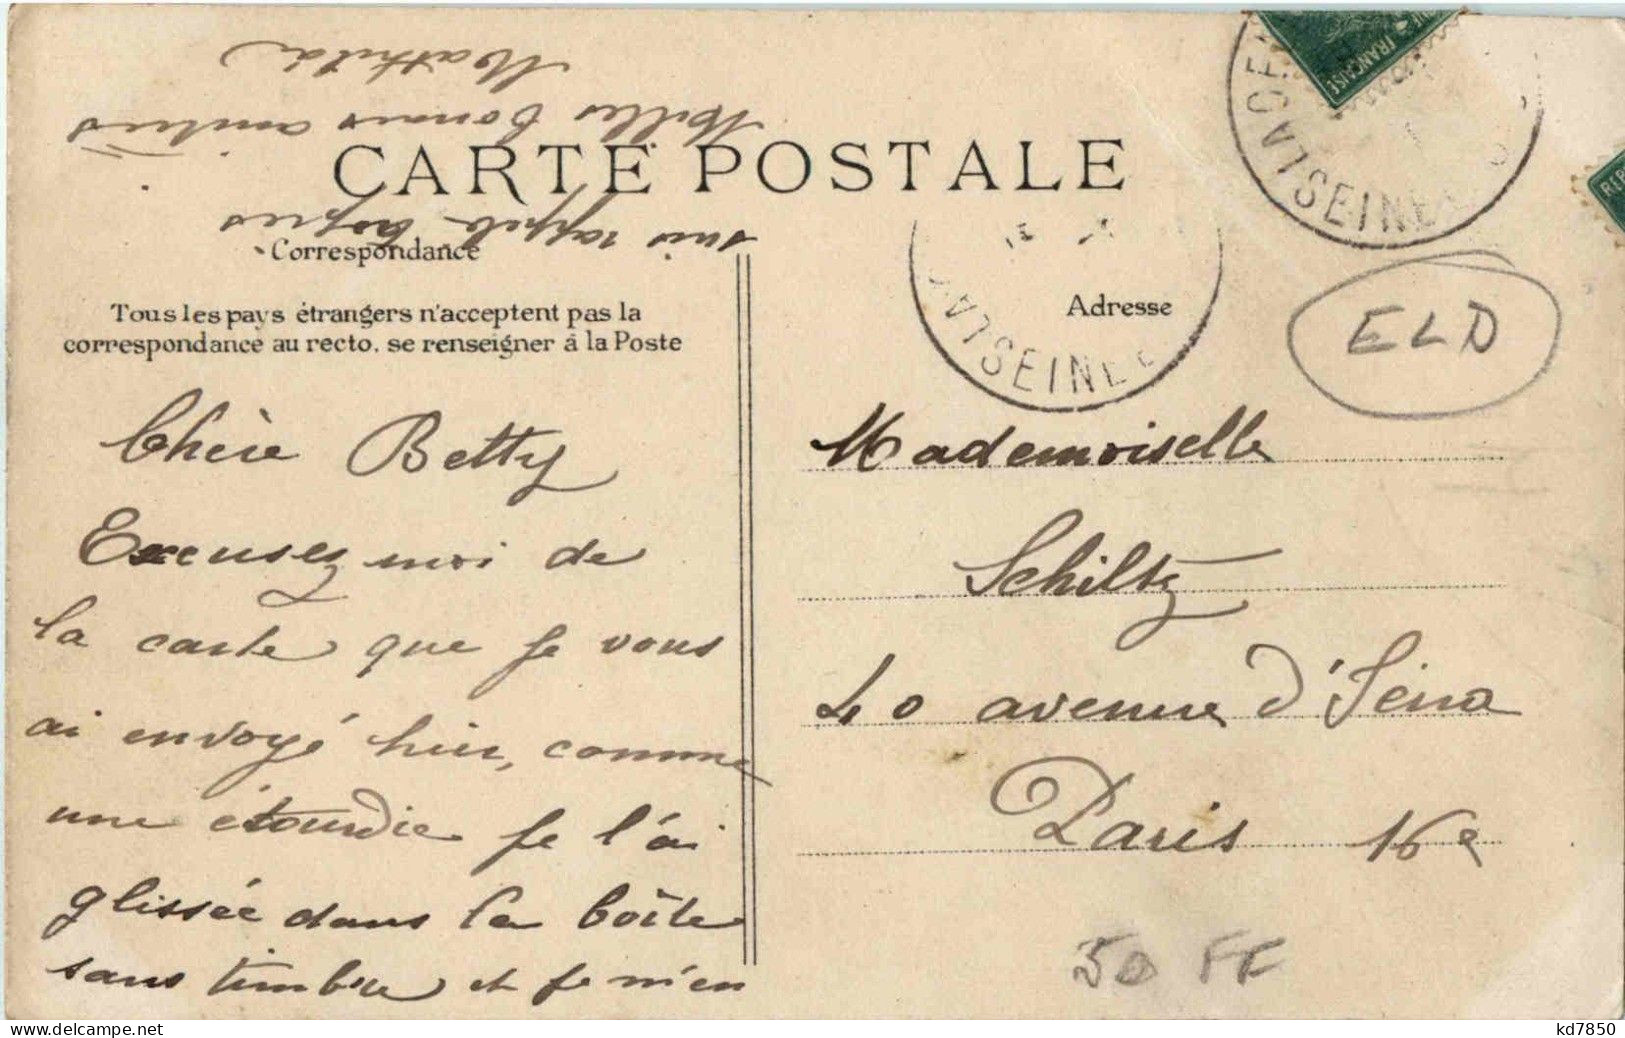 CARTE POSTALE
Correspondance
Tous les pays étrangers n'acceptent pas la
correspondance au recto, se renseigner à la Poste
Chère Betty
Excusez moi de
la carte que je vous
ai envoyé hier, comme
une étourdie je l'ai
glissée dans la boîte
sans timbre et je m'en
suis rappelé après
Milles bonnes amitiés
Mathilde
Adresse
Mademoiselle
Schiltz
40 avenue d'Iéna
Paris 16e
ELD
50 FF
SEINE
SEINE
FRANÇAISE
REP
kd7850